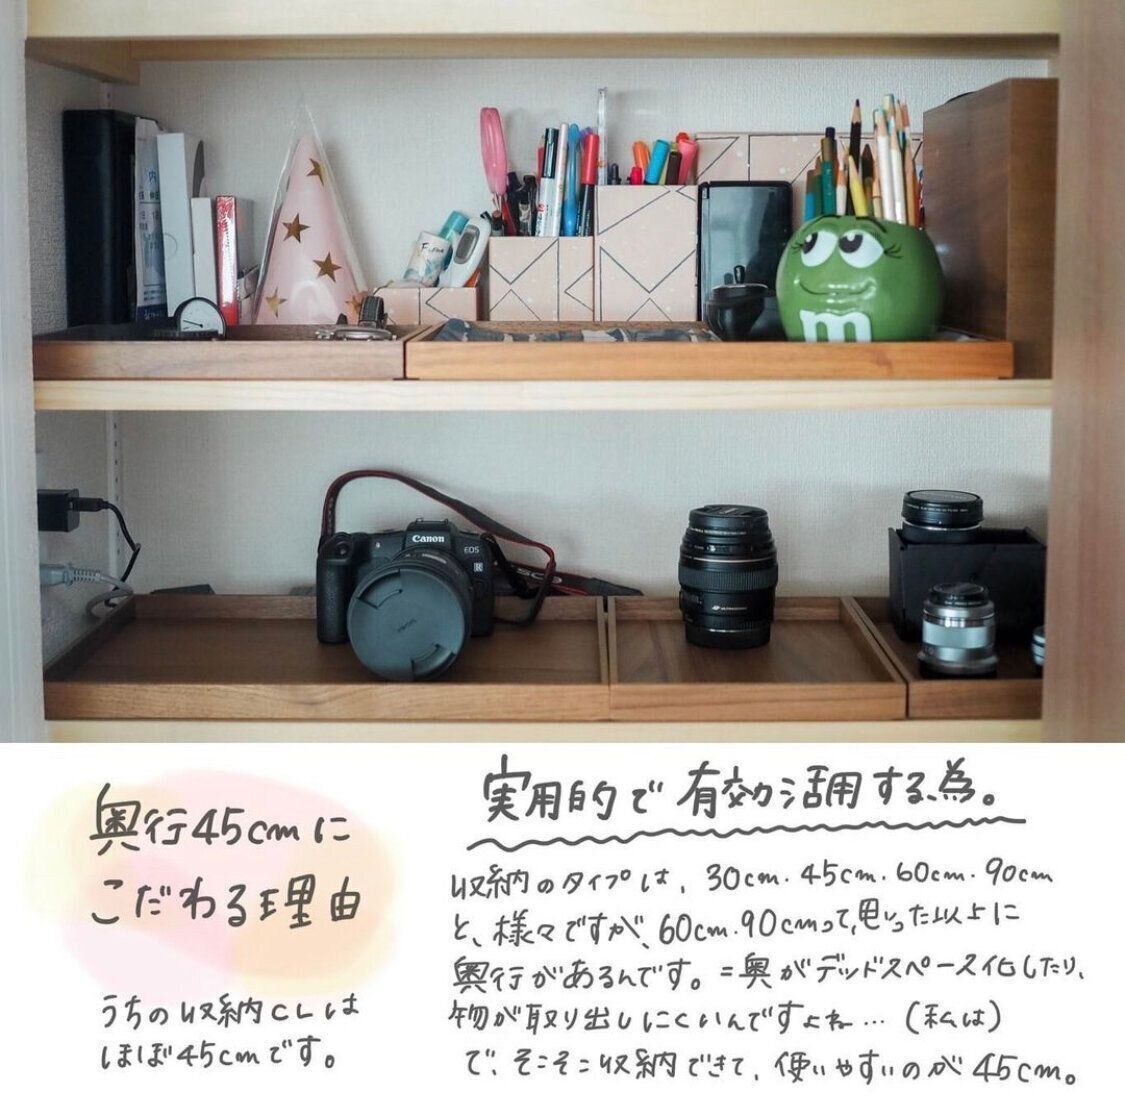 内
Canon
EOS
R
ULTRASONIC
m
奥行45cmに
こだわる理由
うちの収納CLは
ほぼ45cmです。
実用的で有効活用する為。
収納のタイプは、30cm・45cm・60cm・90cm
と、様々ですが、60cm・90cmって、思った以上に
奥行があるんです。=奥がデッドスペース化したり、
物が取り出しにくいんですよね…(私は)
で、そこそこ収納できて、使いやすいのが45cm。